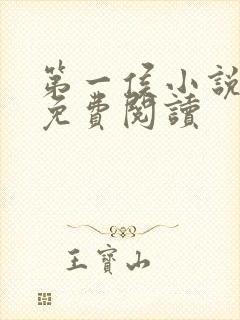 第一侯小說
免費閱讀
王寶山